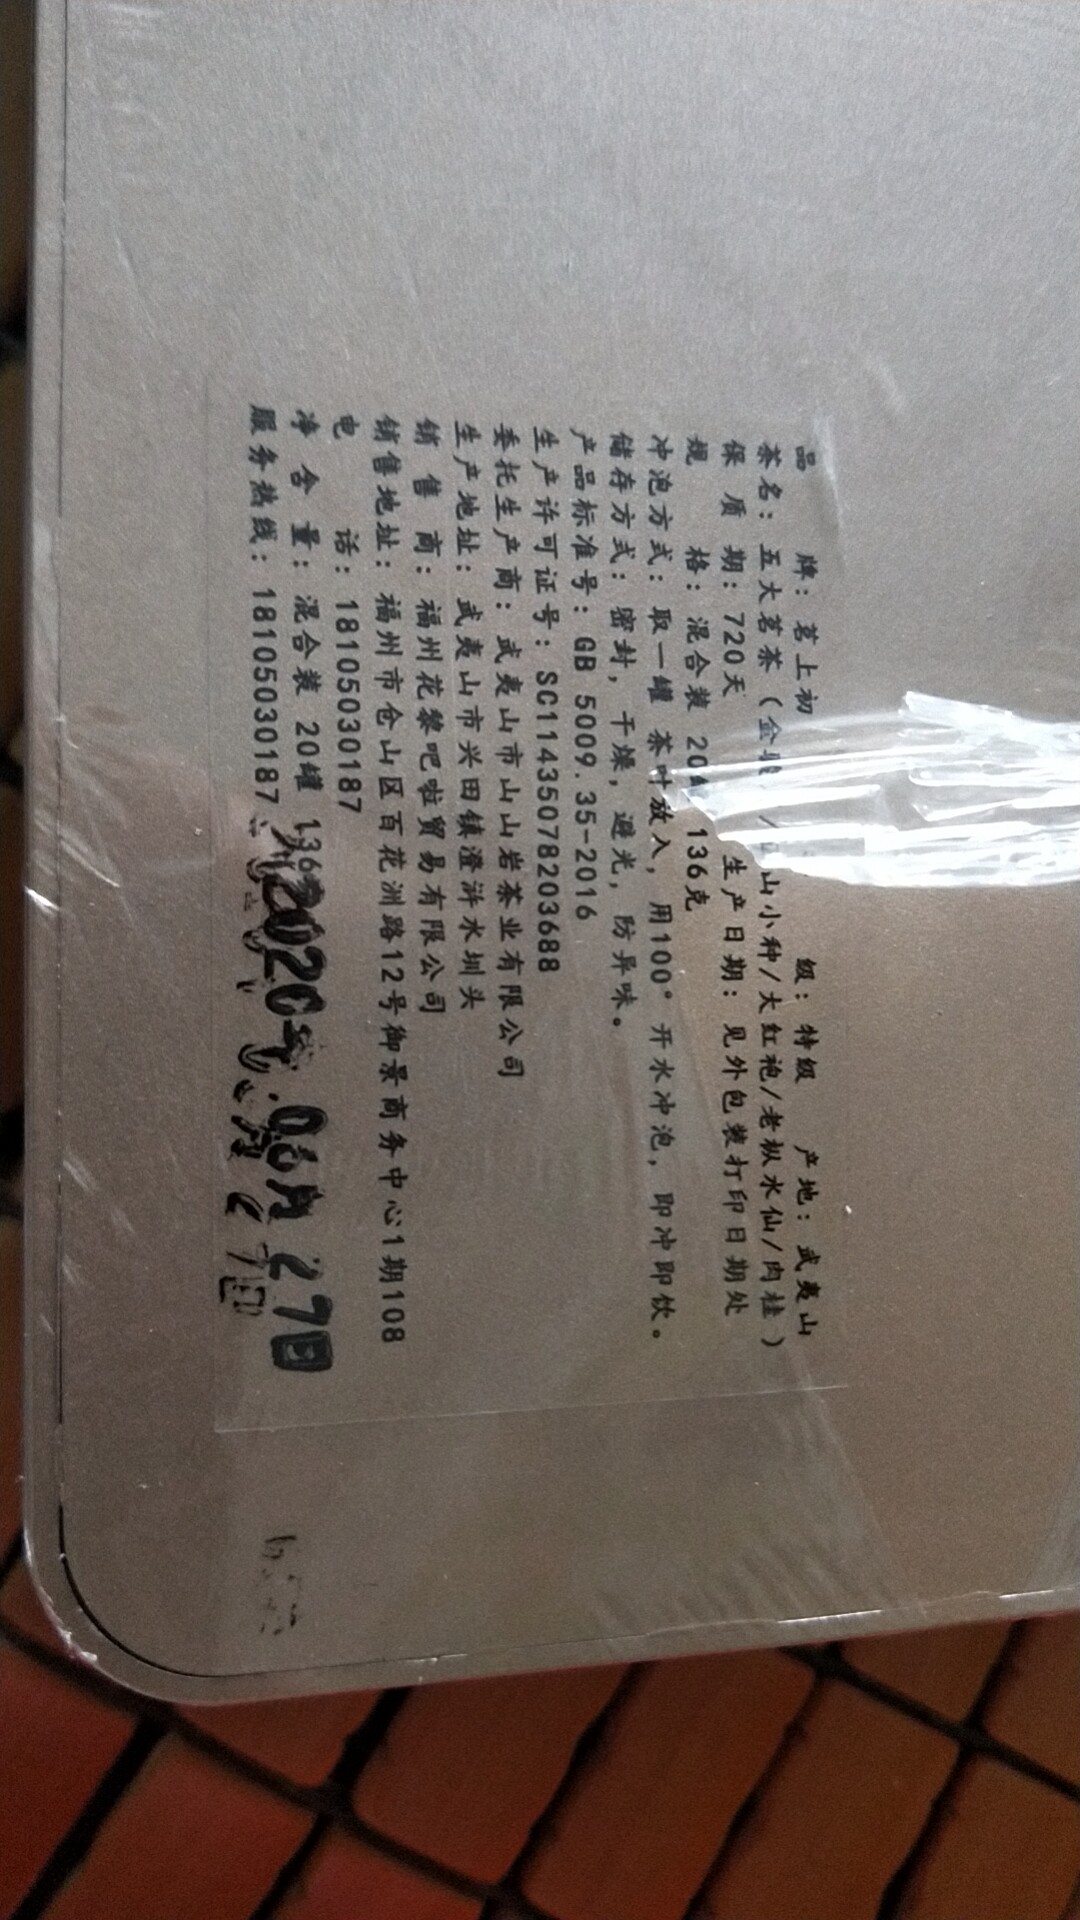 品 牌：茗上初 级：特级 产地：武夷山
茶名：五大茗茶（金 山小种/大红袍/老枞水仙/肉桂）
保质期：720天 生产日期：见外包装打印日期处
规 格：混合装 20 136克
冲泡方式：取一罐 茶叶放入，用100°开水冲泡，即冲即饮。
储存方式：密封，干燥，避光，防异味。
产品标准号：GB 5009.35-2016
生产许可证号：SC11435078203688
委托生产商：武夷山市山山岩茶业有限公司
生产地址：武夷山市兴田镇澄浒水圳头
销 售 商：福州花黎吧啦贸易有限公司
销售地址：福州市仓山区百花洲路12号御景商务中心1期108
电 话：18105030187
净 含 量：混合装 20罐 136
服务热线：18105030187
2020年.06月27日